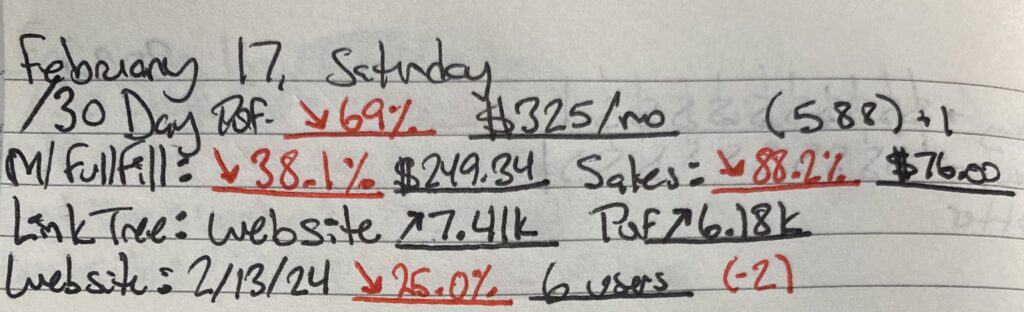 February 17, Saturday
/30 Day Pof. ↘69% $325/mo (588)+1
M/Fullfill: ↘38.1% $249.34 Sales: ↘88.2% $76.00
LinkTree: Website ↗7.41k Pof ↗6.18k
Website: 2/13/24 ↘25.0% 6 users (-2)